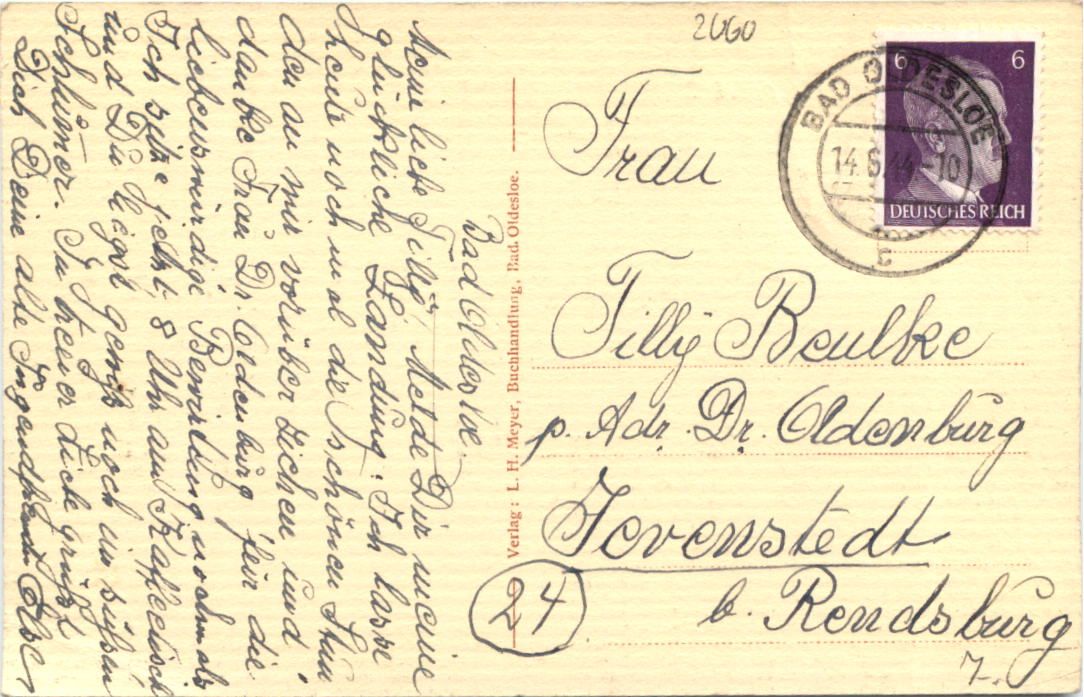 2060
6 6
DEUTSCHES REICH
BAD OLDESLOE
14.6.44-10
c
Frau
Tilly Beulke
p. Adr. Dr. Oldenburg
Jevenstedt
b. Rendsburg
24
Verlag: L. H. Meyer, Buchhandlung, Bad. Oldesloe.
Bad Oldesloe.
Meine liebe Tilly, Melde Dir meine
glückliche Landung. Ich lasse
heute noch mal die schönen Stun
den an mir vorüber ziehen und
danke Frau Dr. Oldenburg für die
liebenswürdige Bewirtung nochmals
Ich sitze jetzt, 8 Uhr am Kaffeetisch
und Du liegst gewiß noch im süßen
Schlummer. In treuer Liebe grüßt
Dich Deine alte Jugendfreundin Else